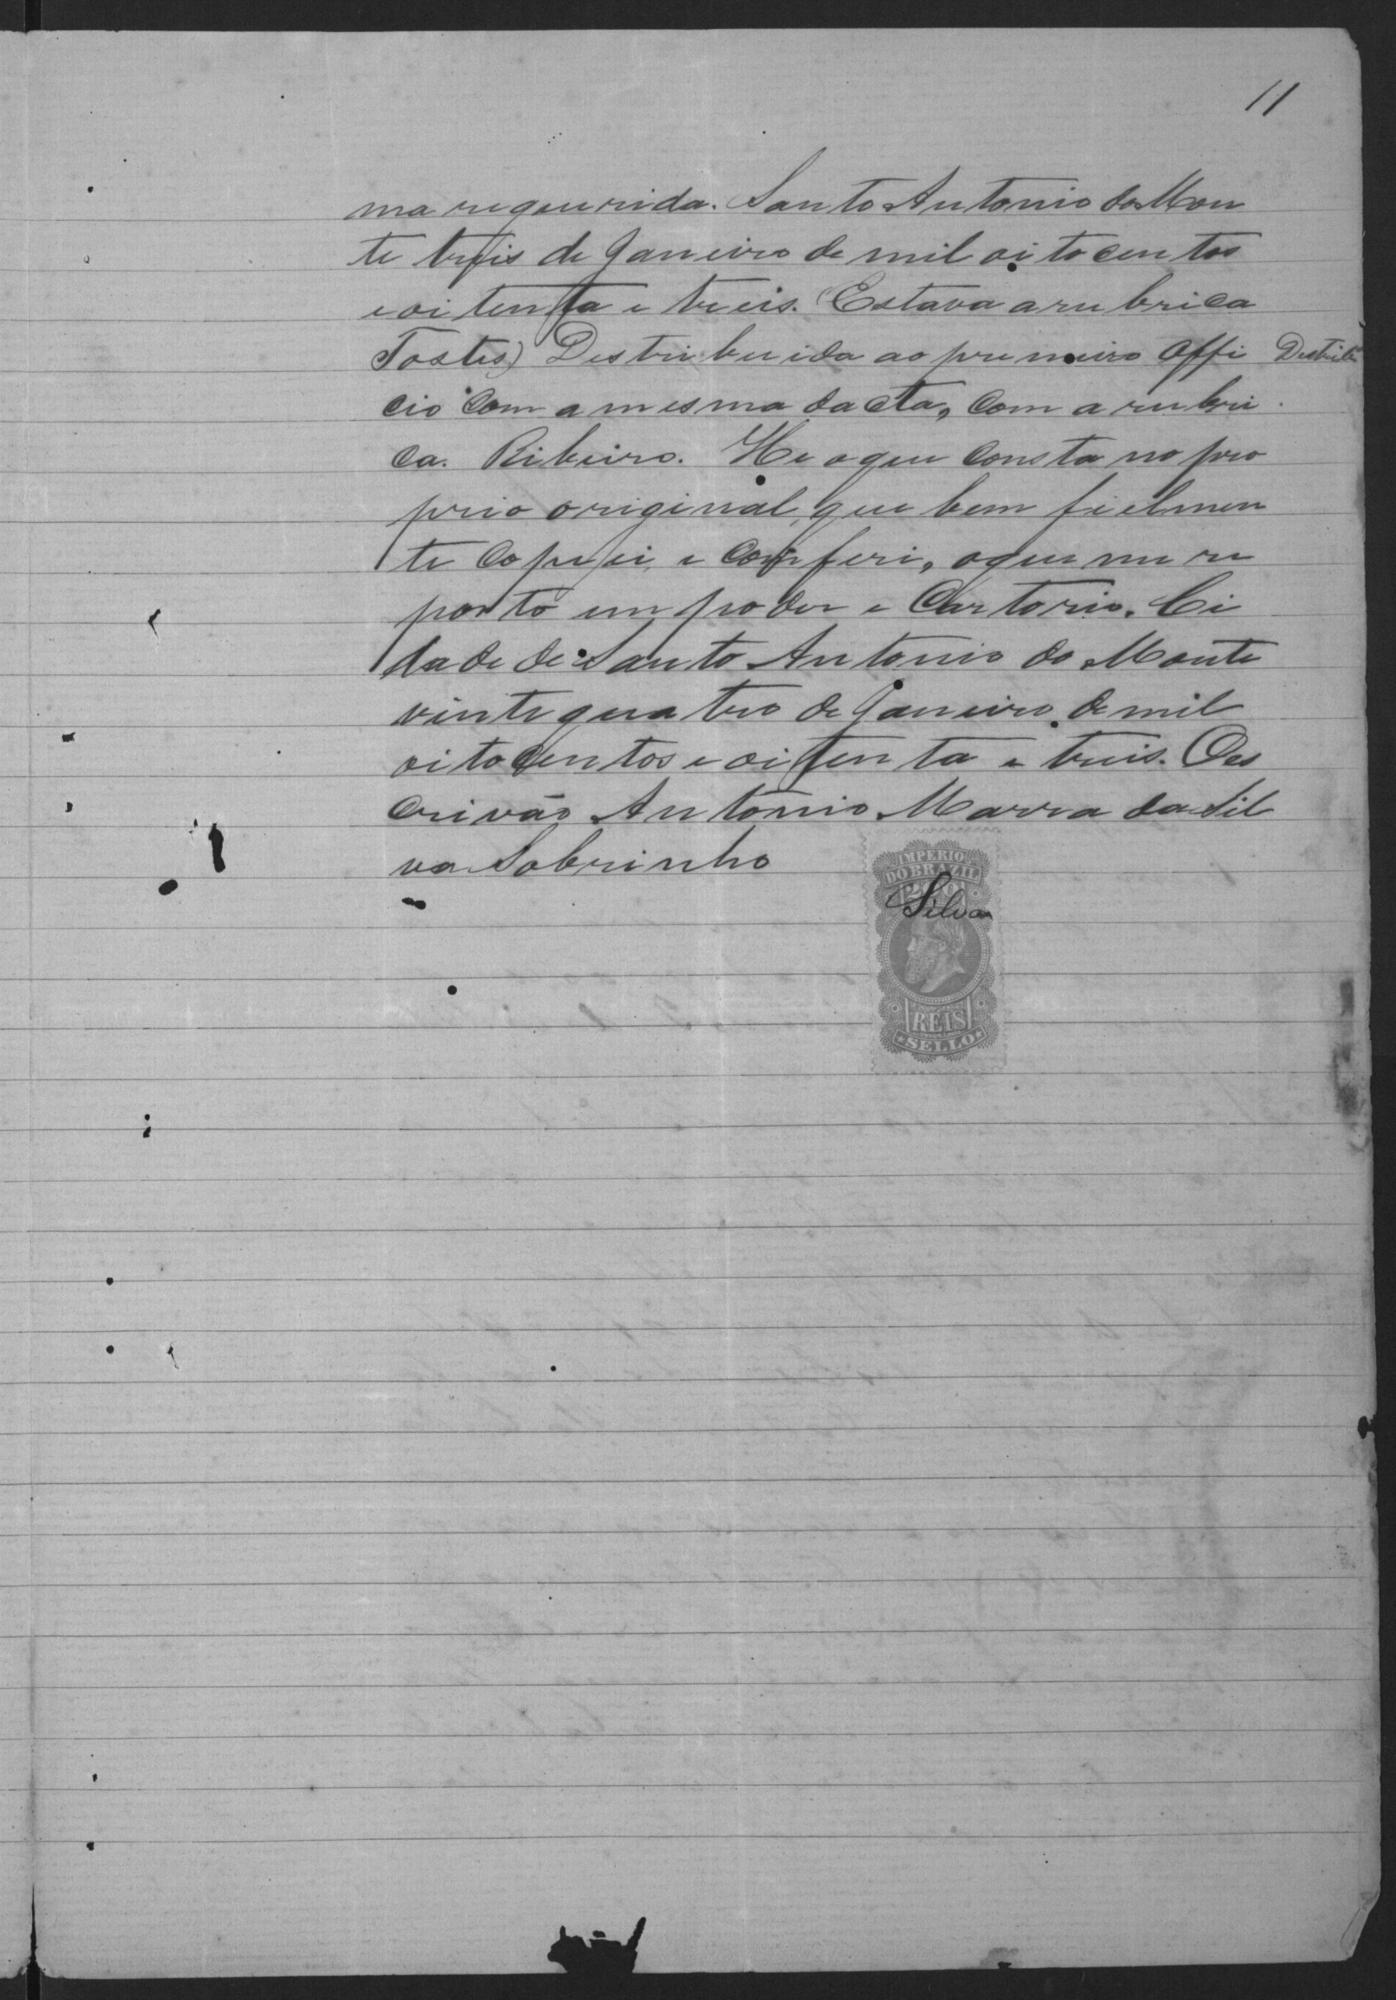 11
ma requerida. Santo Antonio do Mon
te treis de Janeiro de mil oitocentos
e oitenta e treis. (Estava a rubrica
Tostes) Destribuida ao premeiro Offi
Destribᵃ
cio com a mesma dacta, com a rubri
ca. Ribeiro. He o que consta no pro
prio original, que bem fielmen
te copiei e conferi, o que me re
porto em poder e Cartorio. Ci
dade de Santo Antonio do Monte
vinte quatro de Janeiro de mil
oitocentos e oitenta e treis. O es
crivão Antonio Marra da Sil
va Sobrinho
IMPERIO
DO BRAZIL
200
Silva
REIS
SELLO